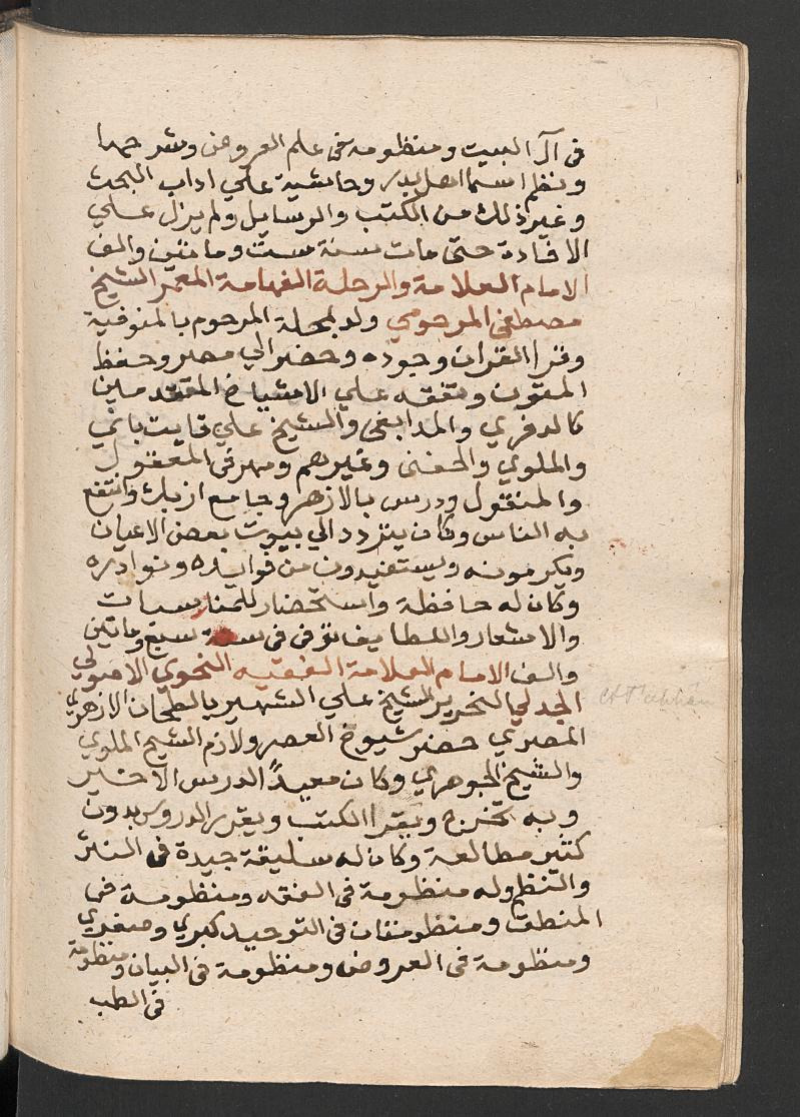 في آل البيت ومنظومة في علم العروض وشرحها
ونظم اسما اهل بدر وحاشية علي اداب البحث
وغير ذلك من الكتب والرسايل ولم يزل علي
الافادة حتى مات سنة ست ومائتين والف
الامام العلامة والرحلة الفهامة المعمر الشيخ
مصطفى المرحومي ولد بمحلة المرحوم بالمنوفية
وقرا القران وجوده وحضر الي مصر وحفظ
المتون وتفقه علي الاشياخ المتقدمين
كالدفري والمدابغي والشيخ علي قايت باي
والملوي والحفني وغيرهم ومهر في المعقول
والمنقول ودرس بالازهر وجامع ازبك وانتفع
به الناس وكان يتردد الي بيوت بعض الاعيان
ويكرمونه ويستفيدون من فوايده ونوادره
وكان له حافظة واستحضار للمناسبات
والاشعار واللطايف توفى في سنة سبع ومائتين
والف الامام العلامة الفقيه النحوي الاصولي
الجدلي النحرير الشيخ علي الشهير بالطحان الازهري
المصري حضر شيوخ العصر ولازم الشيخ الملوي
والشيخ الجوهري وكان معيدًا لدرس الاخير
وبه تخرج ويقرا الكتب ويقرر الدروس بدون
كثير مطالعة وكان له سليقة جيدة في النثر
والنظم وله منظومة في الفقه ومنظومة في
المنطق ومنظومتان في التوحيد كبري وصغري
ومنظومة في العروض ومنظومة في البيان ومنظومة
في الطب